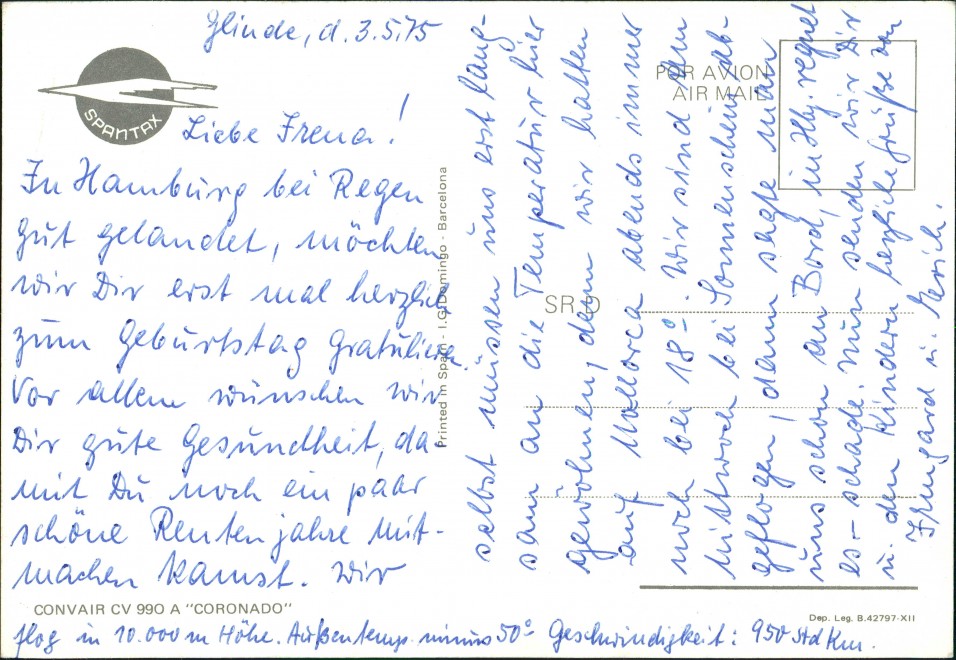 Glinde, d. 3.5.75
SPANTAX
Liebe Frena!
In Hamburg bei Regen
gut gelandet, möchten
wir Dir erst mal herzlich
zum Geburtstag gratulieren.
Vor allem wünschen wir
Dir gute Gesundheit, da-
mit Du noch ein paar
schöne Rentenjahre mit-
machen kannst. Wir
selbst müssen uns erst lang-
sam an die Temperatur hier
gewöhnen, denn wir hatten
auf Mallorca abends immer
noch bei 18°. Wir sind am
Mittwoch bei Sonnenschein ab-
geflogen, dann sagte man
uns schon an Bord, in Hbg. regnet
es – schade. Nun senden wir Dir
u. den Kindern herzliche Grüße von
Irmgard u. Erich.
Printed in Spain - I.G. Domingo - Barcelona
POR AVION
AIR MAIL
SR. D
CONVAIR CV 990 A "CORONADO"
Dep. Leg. B.42797-XII
flog in 10.000 m Höhe. Außentemp. minus 50° Geschwindigkeit: 950 Std Km.